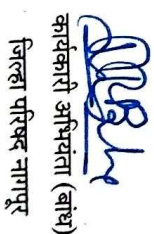 कार्यकारी अभियंता (बांध)
जिल्हा परिषद नागपूर